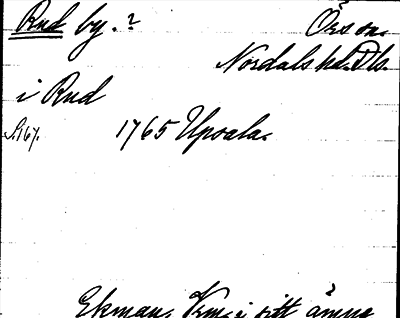 Rud by.? Örs sn.
Nordals hd. Dls.
i Rud
S. 167. 1765 Upsala.
Ekman, Vm. i sitt ämne